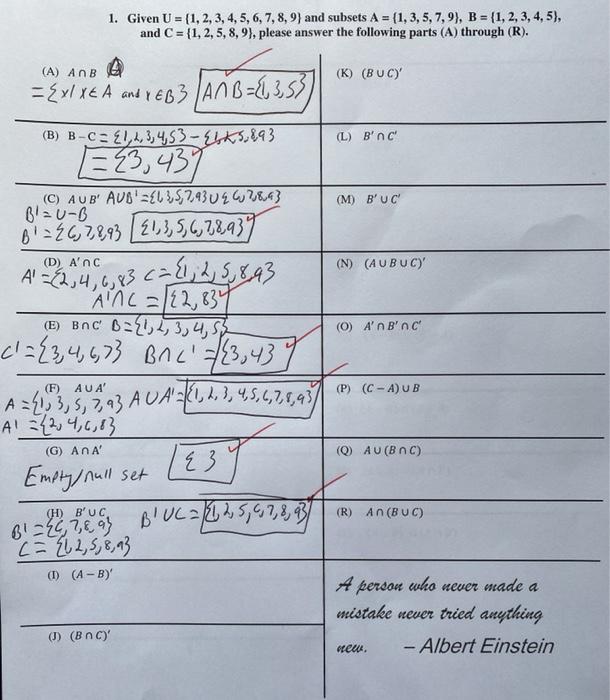 1. Given U = {1, 2, 3, 4, 5, 6, 7, 8, 9} and subsets A = {1, 3, 5, 7, 9}, B = {1, 2, 3, 4, 5},
and C = {1, 2, 5, 8, 9}, please answer the following parts (A) through (R).
(A) A∩B
= {x/x∈A and x∈B} A∩B={1,3,5}
(B) B–C = {1,2,3,4,5} - {1,2,5,8,9}
= {3,4}
(C) A∪B' A∪B'={1,3,5,7,9}∪{6,7,8,9}
B'=U-B
B'={6,7,8,9} {1,3,5,6,7,8,9}
(D) A'∩C
A'={2,4,6,8} C={1,2,5,8,9}
A'∩C = {2,8}
(E) B∩C' B={1,2,3,4,5}
C'={3,4,6,7} B∩C'={3,4}
(F) A∪A'
A={1,3,5,7,9} A∪A'={1,2,3,4,5,6,7,8,9}
A'={2,4,6,8}
(G) A∩A'
Empty/null set { }
(H) B'∪C
B'={6,7,8,9} B'∪C={1,2,5,6,7,8,9}
C={1,2,5,8,9}
(I) (A–B)'
(J) (B∩C)'
(K) (B∪C)'
(L) B'∩C'
(M) B'∪C'
(N) (A∪B∪C)'
(O) A'∩B'∩C'
(P) (C–A)∪B
(Q) A∪(B∩C)
(R) A∩(B∪C)
A person who never made a
mistake never tried anything
new. – Albert Einstein